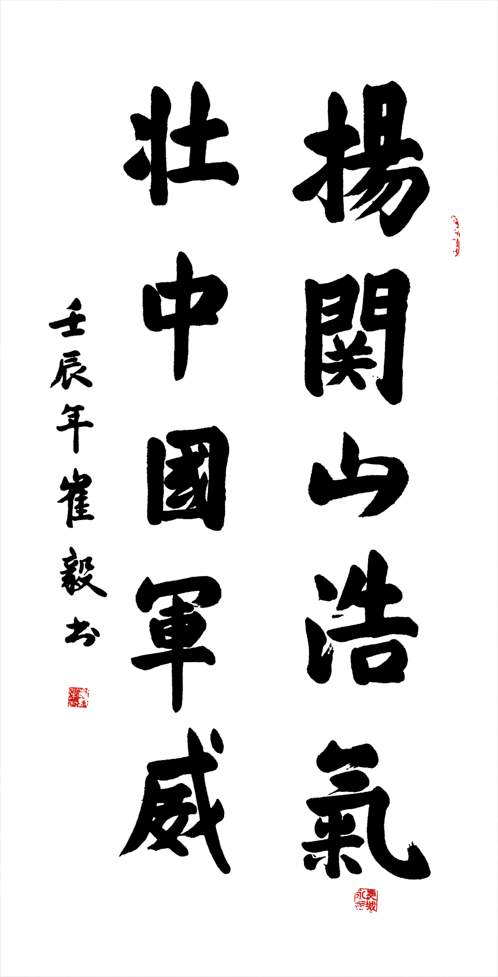 揚関山浩氣
壯中國軍威
壬辰年崔毅书